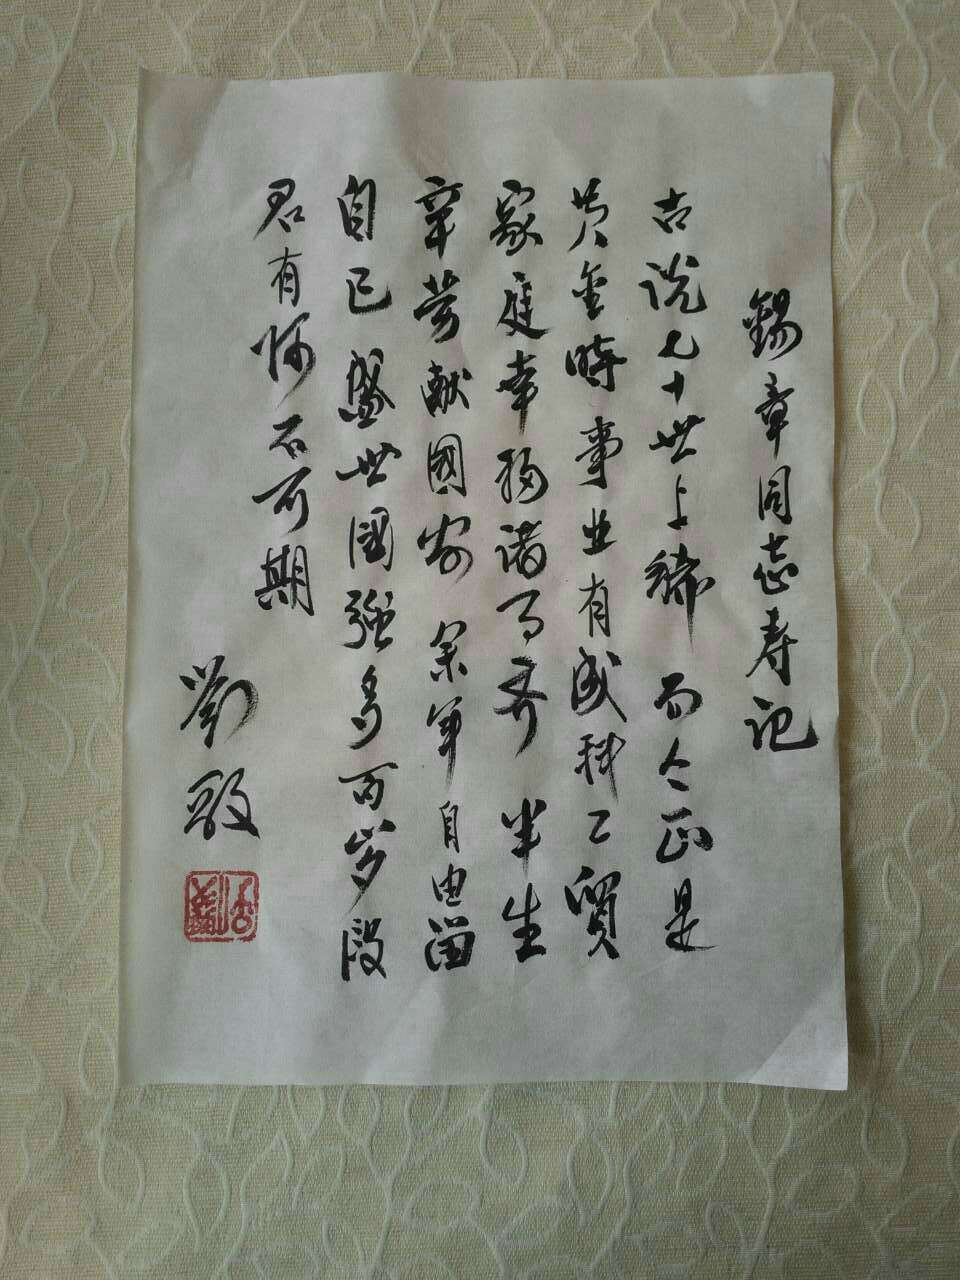 錫章同志寿记
古说七十世上稀 而今正是
黄金時事业有成科工贸
家庭幸福诸事齐 半生
辛劳献國家 余年自由留
自己 盛世國强多百岁 段
君有何不可期
劉敬